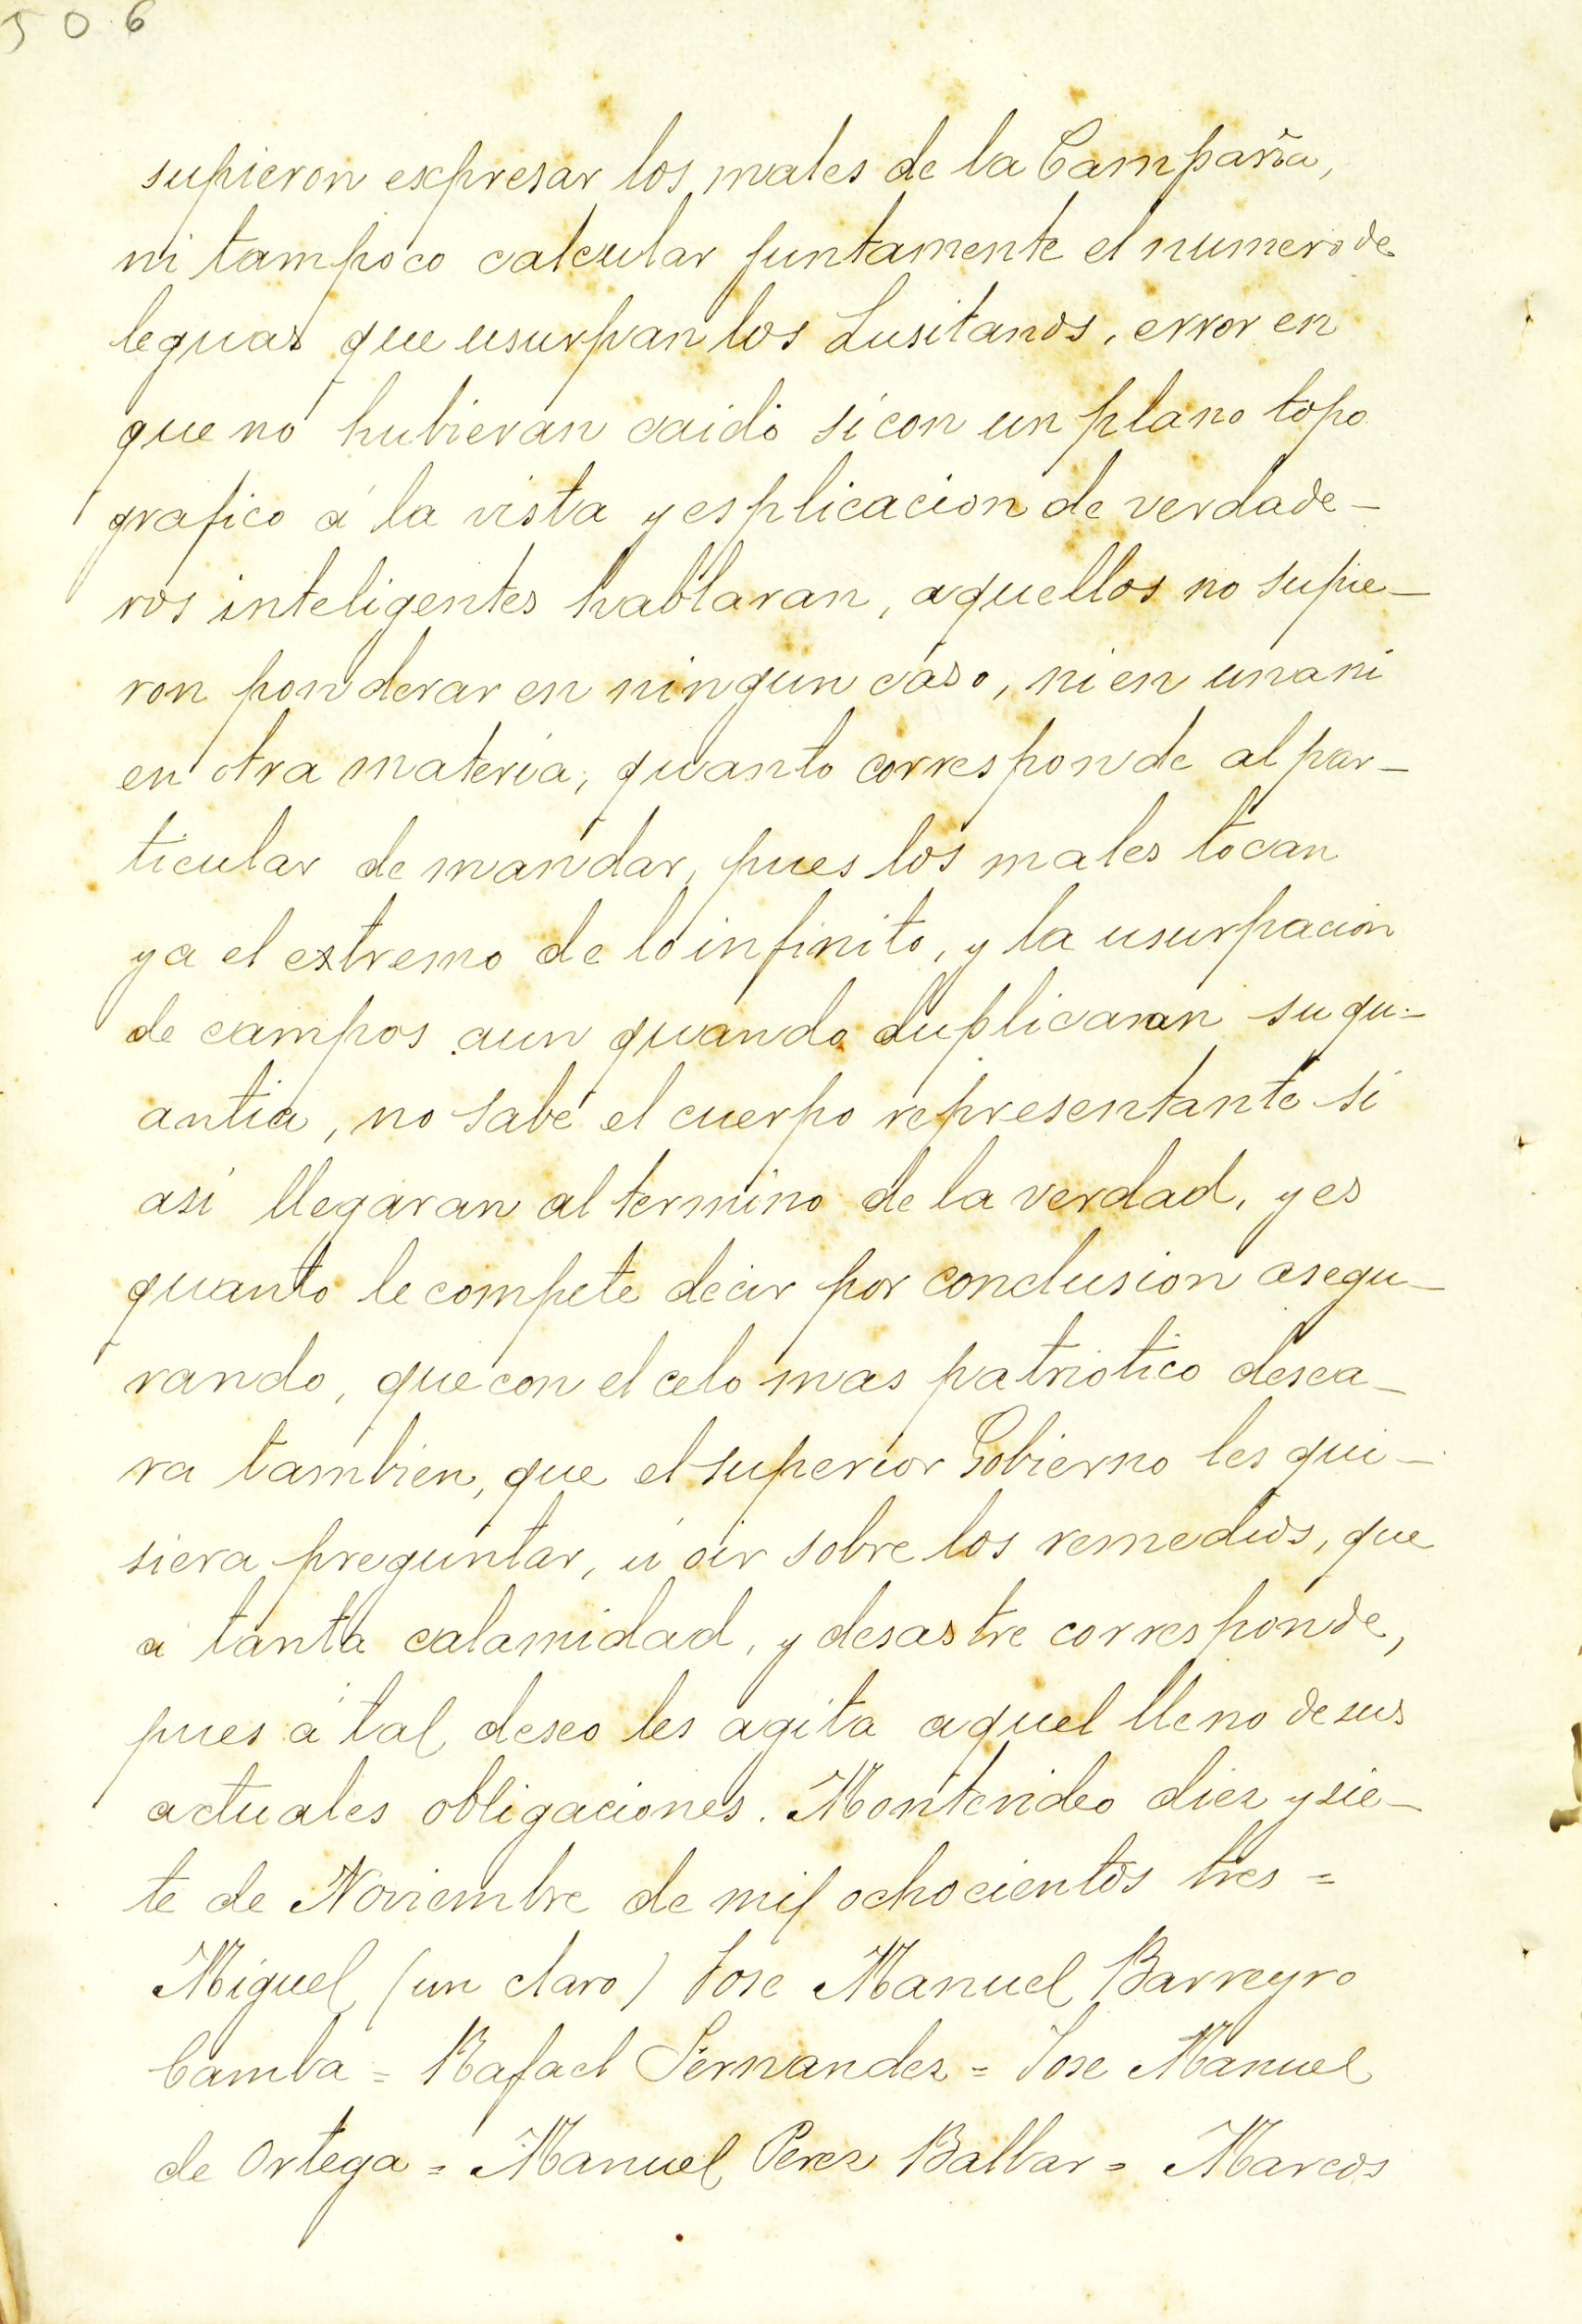 506
supieron expresar los males de la Campaña,
ni tampoco calcular puntamente el numero de
leguas que usurpan los Lusitanos, error en
que no hubieran caido si con un plano topo
grafico á la vista y esplicacion de verdade-
ros inteligentes hablaran, aquellos no supie-
ron ponderar en ningun caso, ni en una ni
en otra materia, quanto corresponde al par-
ticular de mandar, pues los males tocan
ya el extremo de lo infinito, y la usurpacion
de campos aun quando duplicaran su qu-
antia, no sabe el cuerpo representante si
asi llegaran al termino de la verdad, y es
quanto le compete decir por conclusion asegu-
rando, que con el celo mas patriotico desea-
ra tambien, que el superior Gobierno les qui-
siera preguntar, ú oir sobre los remedios, que
a tanta calamidad, y desastre corresponde,
pues á tal deseo les agita aquel lleno de sus
actuales obligaciones. Montevideo diez y sie-
te de Noviembre de mil ochocientos tres =
Miguel (un claro) Jose Manuel Barreyro
Camba = Rafael Fernandez = Jose Manuel
de Ortega = Manuel Perez Balbar = Marcos